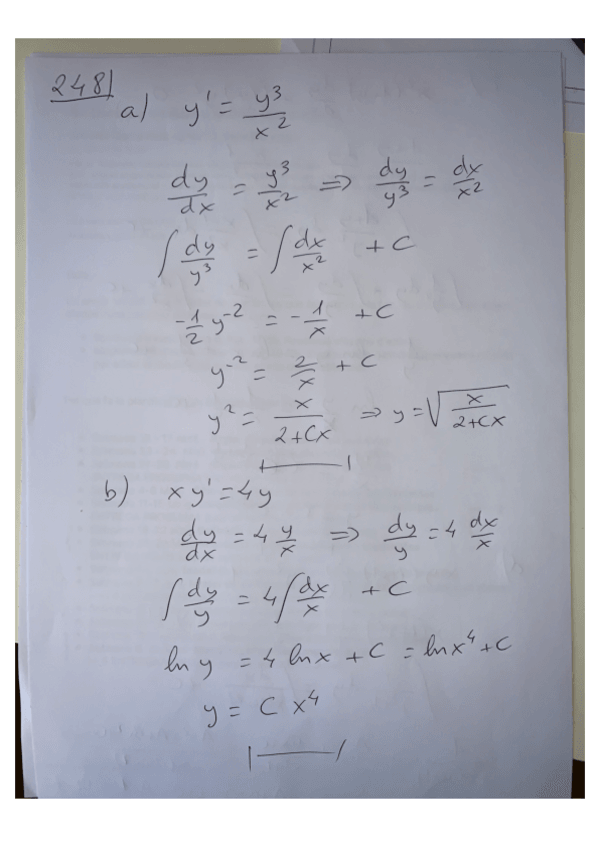 248|
a) y' = y³/x²
dy/dx = y³/x² ⇒ dy/y³ = dx/x²
∫ dy/y³ = ∫ dx/x² + C
-1/2 y⁻² = -1/x + C
y⁻² = 2/x + C
y² = x/(2+Cx) ⇒ y = √(x/(2+Cx))
b) xy' = 4y
dy/dx = 4 y/x ⇒ dy/y = 4 dx/x
∫ dy/y = 4 ∫ dx/x + C
ln y = 4 ln x + C = ln x⁴ + C
y = C x⁴